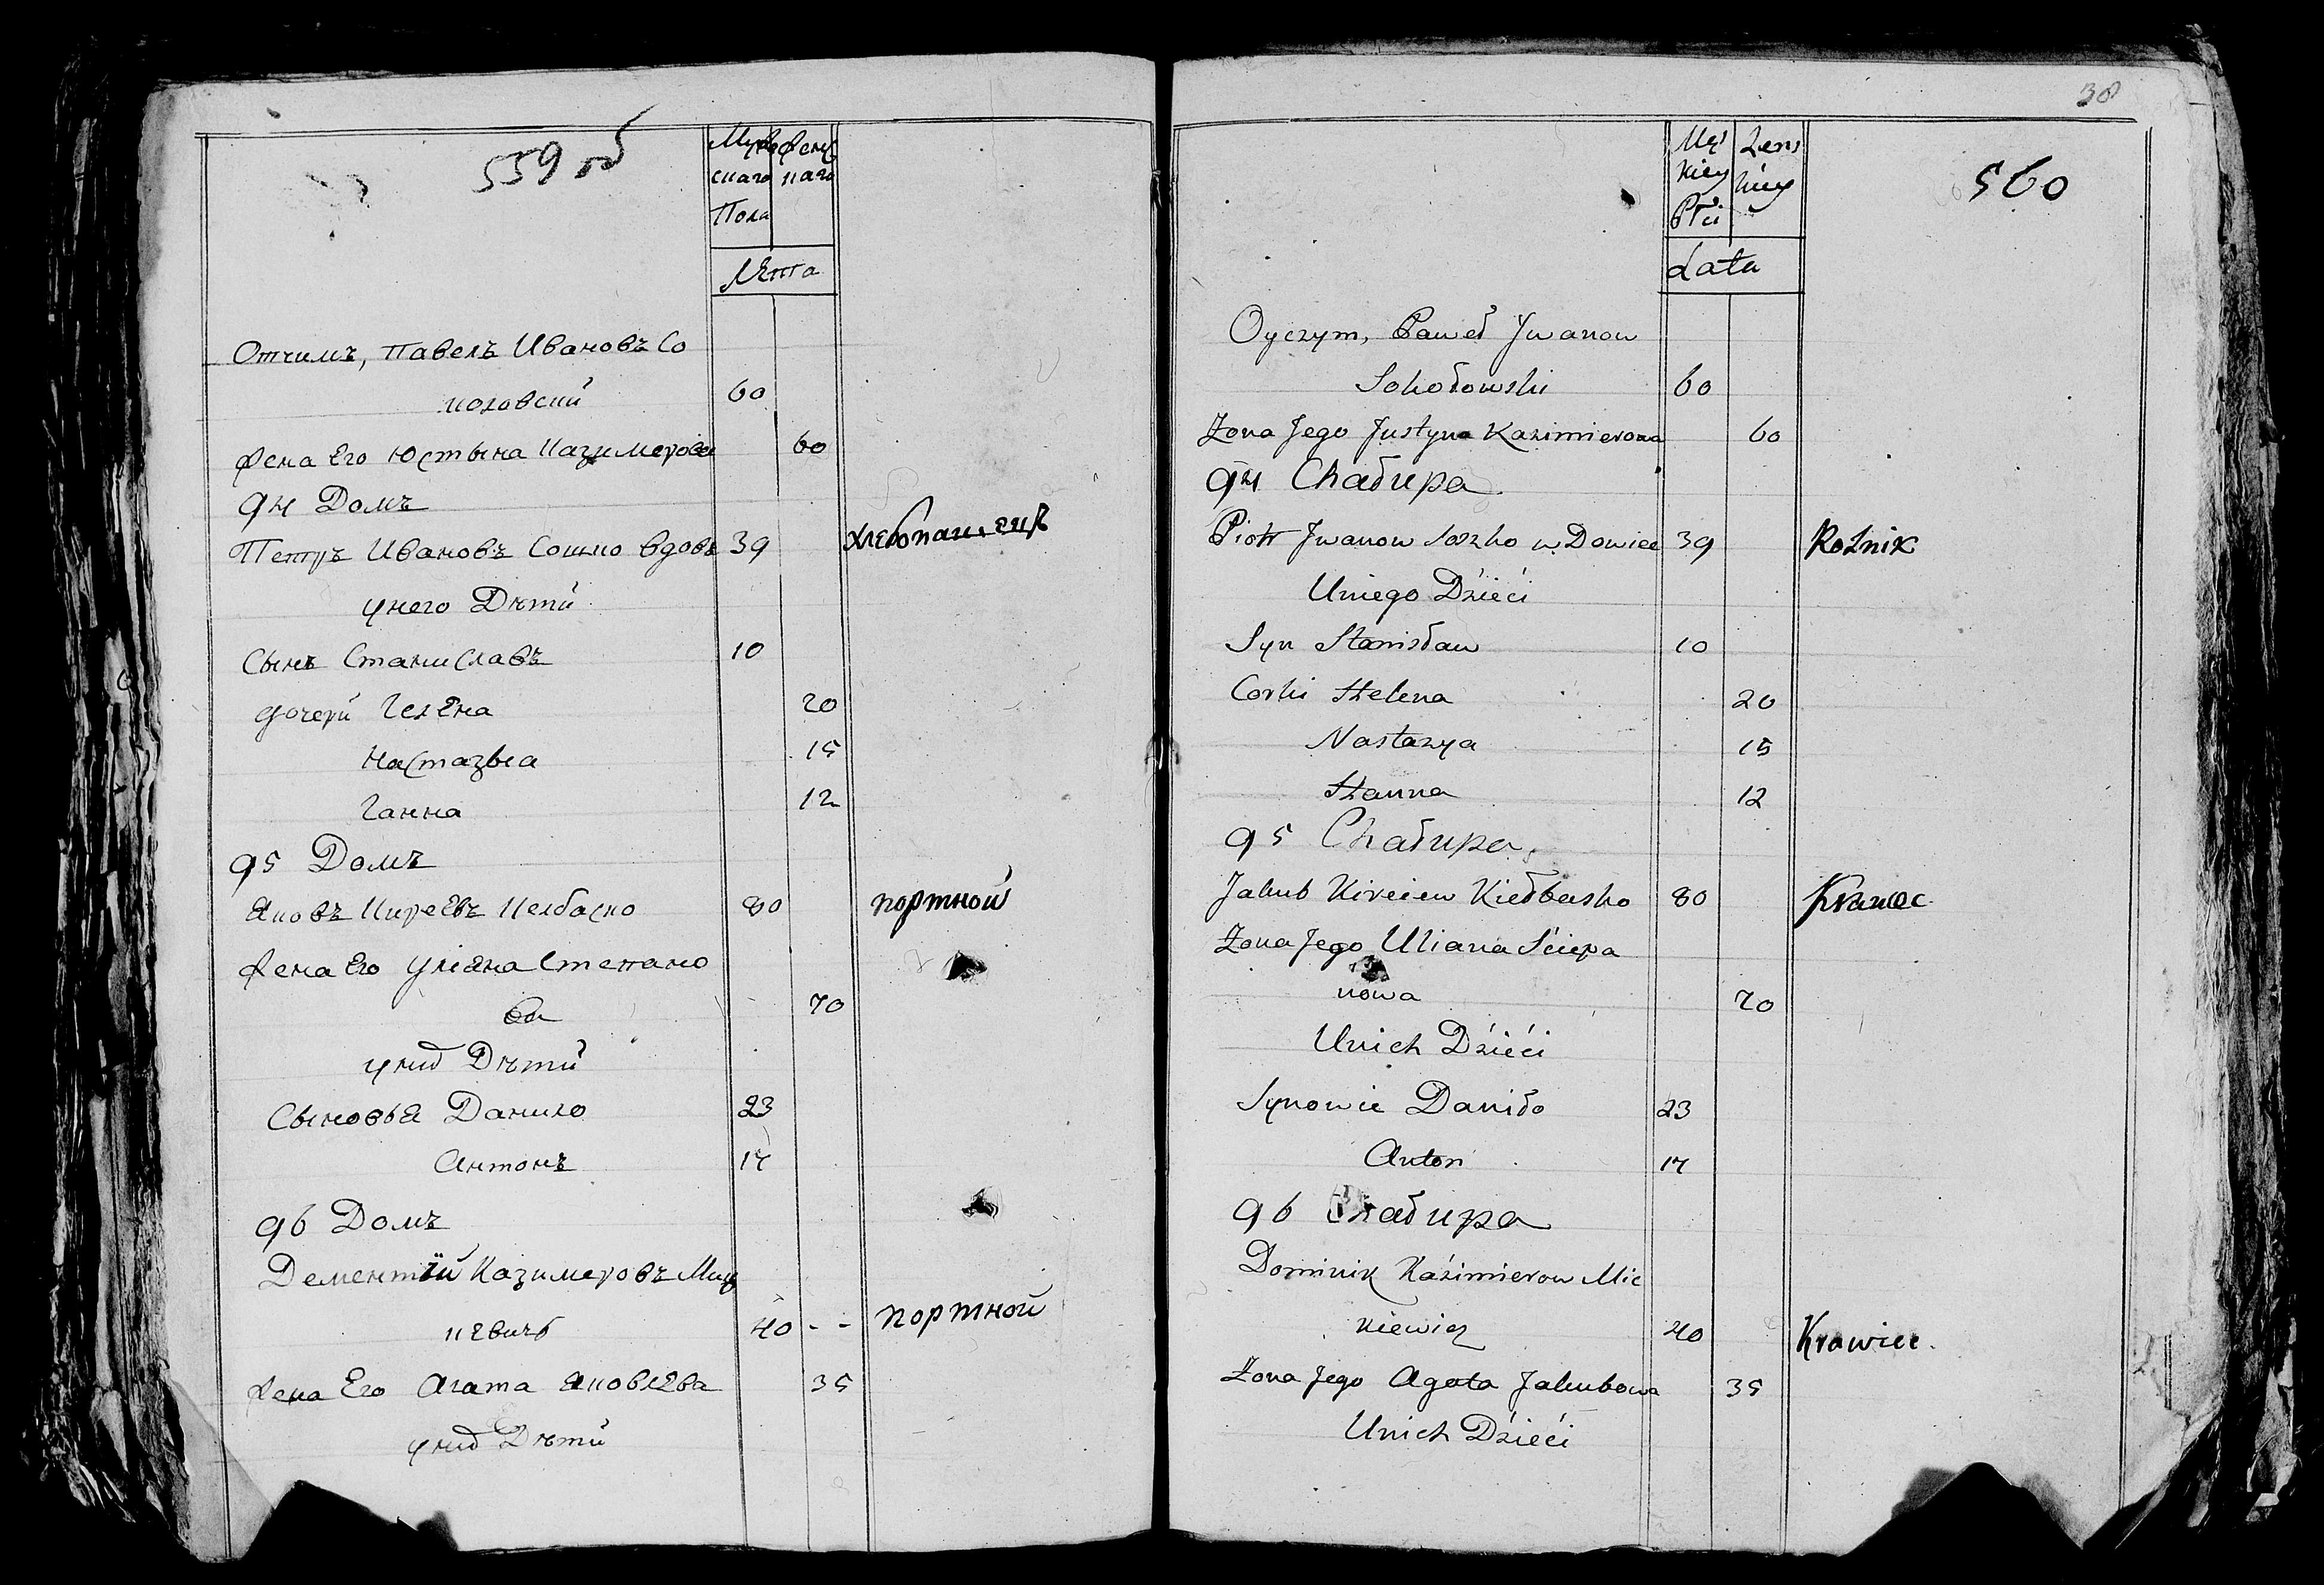 559 об
Мужескаго Пола
Женскаго
Лета
Отчимъ, павелъ Ивановъ Со
коловский 60
Жена Его Юстына Казимерова 60
94 Домъ
Петръ Ивановъ Сошко вдовъ 39 хлебопашецъ
унего Дѣти
Сынъ Станиславъ 10
дочери Гелена 20
Настазыа 15
Ганна 12
95 Домъ
Яковъ Киреевъ Келбаско 80 портной
Жена Его Улiяна Степано
ва 70
уних Дѣти
Сыновья Данило 23
Антонъ 17
96 Домъ
Дементiй Казимеровъ Миц
кевичъ 40 - - портной
Жена Его Агата Яковлева 35
уних Дѣти
38
560
Męskiey Płci
Żenskiey
Lata
Oyczym, Paweł Jwanow
Sokołowski 60
Żona Jego Justyna Kazimierowa 60
94 Chałupa
Piotr Jwanow Soszko wDowiec 39 Rolnik
Uniego Dzieći
Syn Stanisław 10
Corki Helena 20
Nastazya 15
Hanna 12
95 Chałupa
Jakub Kireiew Kiełbasko 80 Krawec
Żona Jego Uliana Sciepa
nowa 70
Unich Dzieći
Synowie Daniło 23
Anton 17
96 Chałupa
Dominik Kaźimierow Mic
kiewicz 40 Krawiec.
Żona Jego Agata Jakubowa 35
Unich Dzieći